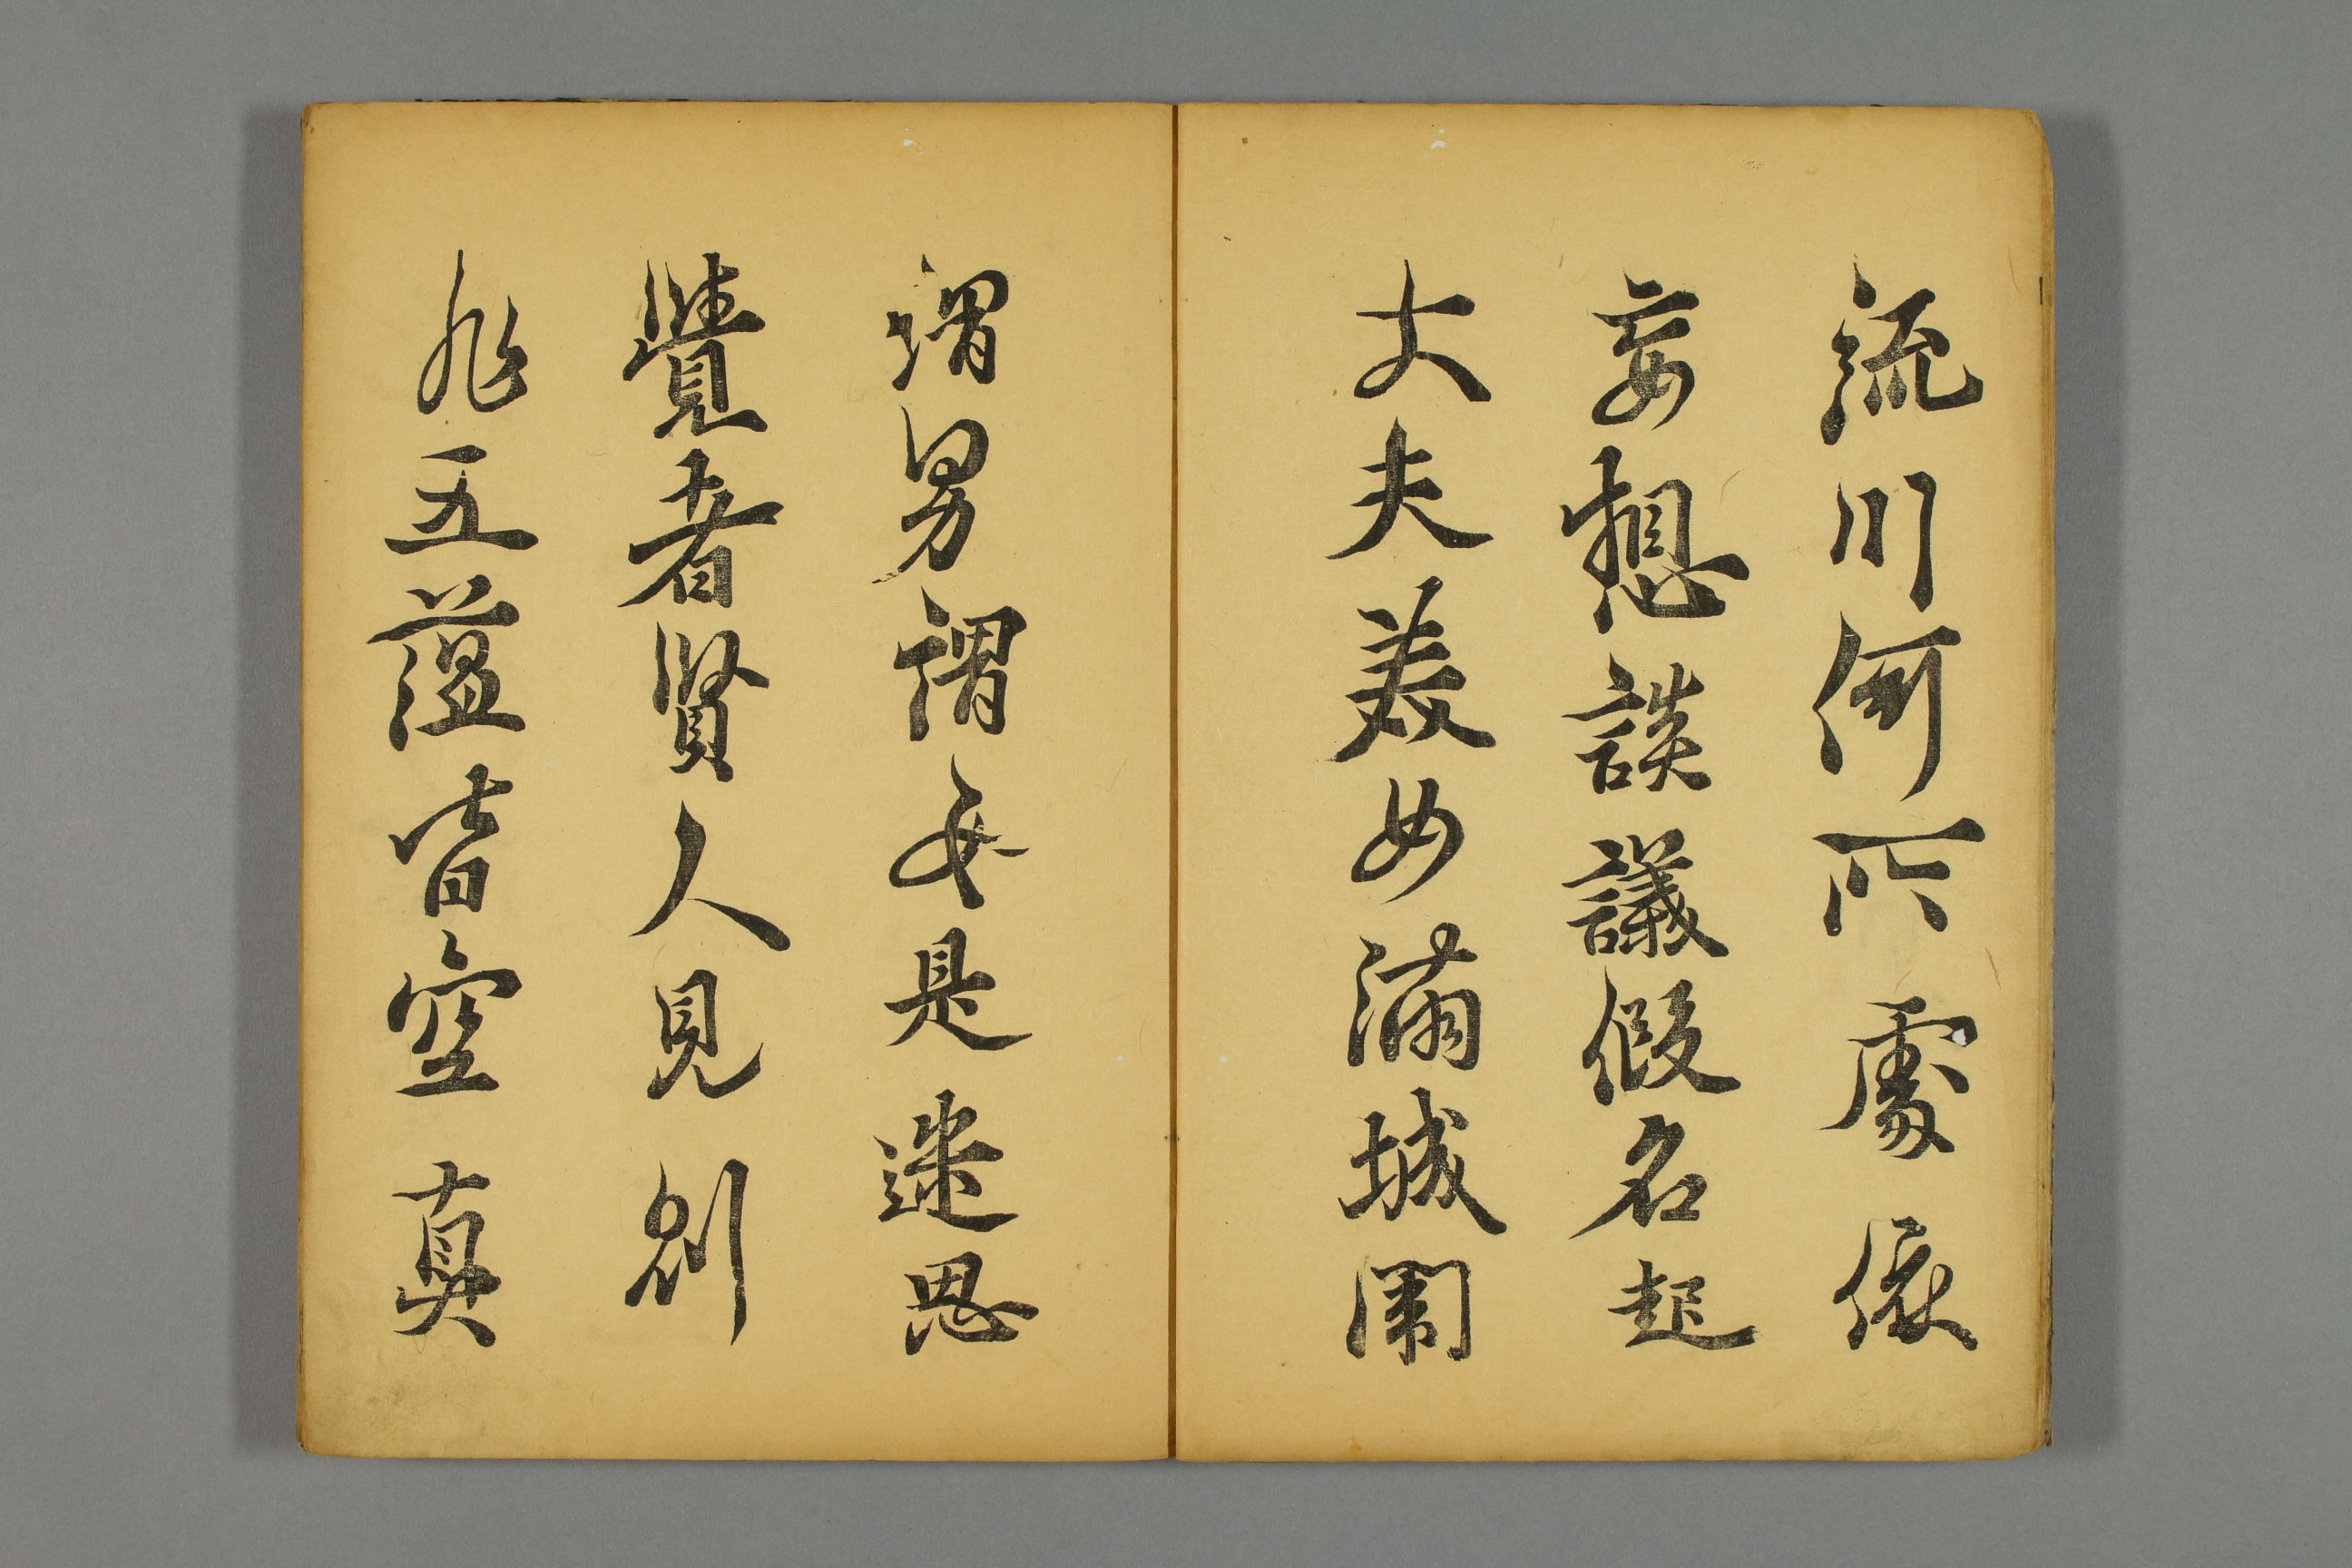 流川何所處依
妄想談議假名起
丈夫美女滿城闈
謂男謂女是迷思
覺者賢人見則
非五蘊皆空真